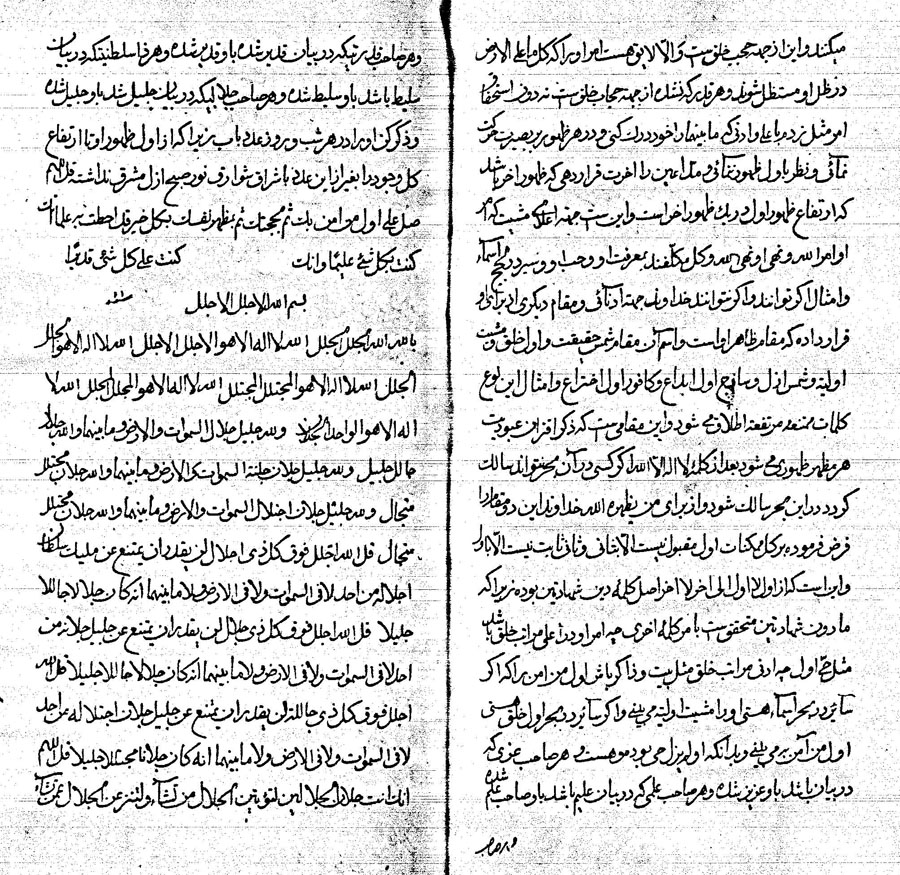 میکنند و این از جهة حجب خلق است و الا لایق هست امر او را که کل ما علی الارض
در ظل او مستظل شوند و هر قدر که نشده از جهة حجاب خلق است نه دون استحقاق
امر مثل زده باعلی و ادنی که ما بینهما را خود درک کنی و در هر ظهور بر بصیرت حرکت
نمائی و نظر باول ظهور نمائی و مد اعین را آخرت قرار دهی که ظهور آخر باشد
که ارتفاع ظهور اول در یک ظهور آخر است و این است جهة اعلای مشیت که امر
او امر الله و نهی او نهی الله و کل مکلفند بمعرفت او و حب او و سیر در بحر اسماء
و امثال اگر توانند و اگر نتوانند خداوند جهة ادنائی و مقام دیگری از برای او
قرار داده که مقام ظاهر او است و اسم آن مقام شمس حقیقت و اول خلق و مشیت
اولیه و شمس ازل و ساذج اول ابداع و کافور اول اختراع و امثال این نوع
کلمات ممتنعه مرتفعه اطلاق می شود و این مقامی است که ذکر اقتران عبودیت
هر مظهر ظهوری می شود بعد از کلمه لا اله الا الله اگر کسی در آن بحر تواند سالک
گردد در این بحر سالک شود و از برای من یظهره الله خداوند این دو مقام را
فرض فرموده بر کل ممکنات اول مقبول نیست الا بثانی و ثانی ثابت نیست الا باول
و این است که از اول لا اول الی آخر لا آخر اصل کلمه دین شهادتین بوده زیرا که
مادون شهادتین متحقق است بامر کلمه اخری چه امر او در اعلی مراتب خلق باشد
مثل حی اول چه ادنی مراتب خلق مثل بیت و ذاکر باش اول من امن را که اگر
سائر در بحر اسماء هستی او را مشیت اولیه می بینی و اگر سائر در بحر اول خلق هستی
اول من آمن می بینی و بدانکه او لم یزل حی بوده و هست و هر صاحب عزی که
در بیان باشد باو عزیز شده و هر صاحب علمی که در بیان علیم باشد باو صاحب علم شده
و هر صاحب
و هر صاحب قدرتیکه در بیان قدیر شده باو قدیر شده و هر ذا سلطنتیکه در بیان
سلیط باشد باو سلیط شده و هر صاحب جلالیکه در بیان جلیل شد باو جلیل شده
و ذکر کن او را در هر شب و روز عدد باب زیرا که از اول ظهور او تا ارتفاع
کل وجود را بغیر از این عدد باشراق شوارق نور صبح ازل مشرق نداشته قل اللهم
صل علی اول من امن بک ثم محبیک ثم بمظهر نفسک بکل خیر قد احطت به علما انک
کنت بکل شیئ علیما و انک کنت علی کل شئ قدیرا
بسم الله الاجلل الاجلل
بالله الله الجلل الجلل الله لا اله الا هو الاجلل الاجلل الله لا اله الا هو الجلل
الجلل الله لا اله الا هو المجتلل المجتلل الله لا اله الا هو المجلل المجلل الله لا
اله الا هو الواحد الجلال و لله جلیل جلال السموات و الارض و ما بینهما و الله جلال
جالل جلیل و لله جلیل جلان جللة السموات و الارض و ما بینهما و الله جلان مجتلل
متجال و لله جلیل جلان اجتلال السموات و الارض و ما بینهما و الله جلان مجتلل
متجال قل الله اجلل فوق کل ذی اجلال لن یقدر ان یمتنع عن ملیک سلطان
اجلاله من احد لا فی السموات و لا فی الارض و لا ما بینهما انه کان جلالا جاللا
جلیلا قل الله اجلل فوق کل ذی جلال لن یقدر ان یمتنع عن جلیل جلاله من
احد لا فی السموات و لا فی الارض و لا ما بینهما انه کان جلالا جاللا جلیلا قل الله
اجلل فوق کل ذی جاللة لن یقدر ان یمتنع عن جلیل جلان اجتلاله من احد
لا فی السموات و لا فی الارض و لا ما بینهما انه کان جلانا مجتللا جلیلا قل اللهم
انک انت جلان الجلال لتؤتین الجلال من تشاء و لتنزعن الجلال عمن تشاء